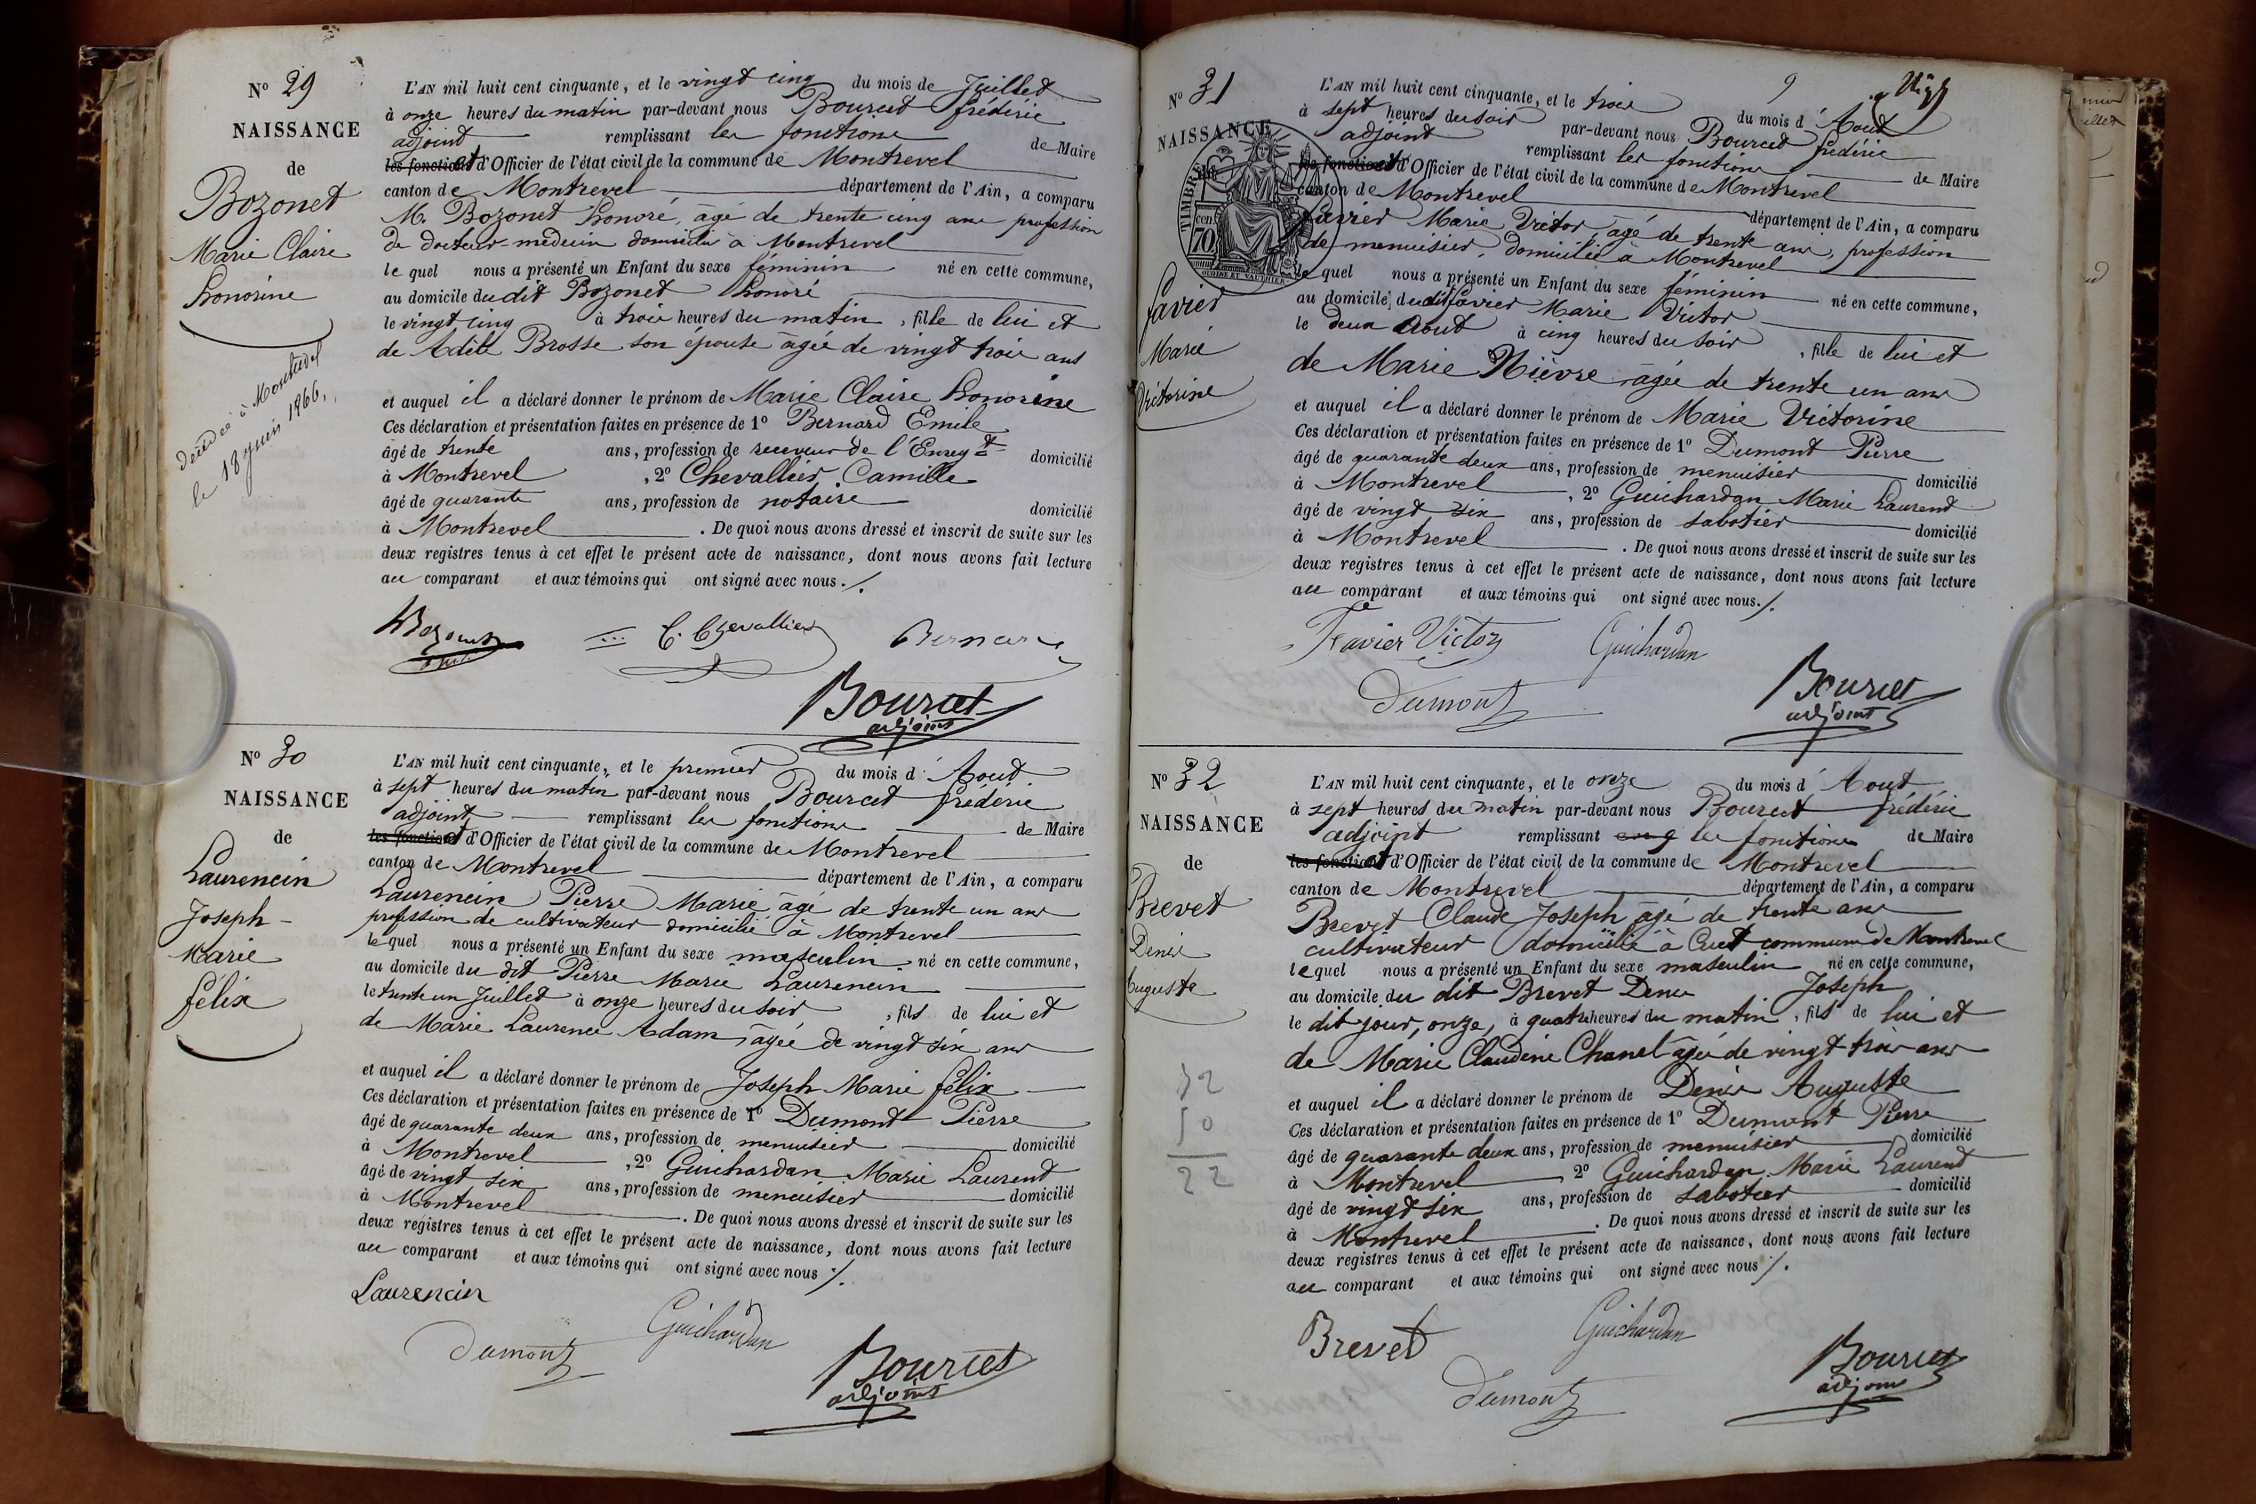 N° 29
NAISSANCE
de
Bozonet
Marie Claire
honorine
décédée à Montrevel
le 18 juin 1866.
L'AN mil huit cent cinquante, et le vingt cinq du mois de Juillet
à onze heures du matin par-devant nous Bourcet frédéric
adjoint remplissant les fonctions de Maire
les fonctions et d'Officier de l'état civil de la commune de Montrevel
canton de Montrevel département de l'Ain, a comparu
M. Bozonet honoré, âgé de trente cinq ans profession
de docteur medecin domicilié à Montrevel
le quel nous a présenté un Enfant du sexe féminin né en cette commune,
au domicile du dit Bozonet honoré
le vingt cinq à trois heures du matin, fille de lui et
de Adèle Brosse son épouse âgée de vingt trois ans
et auquel il a déclaré donner le prénom de Marie Claire honorine
Ces déclaration et présentation faites en présence de 1° Bernard Emile
âgé de trente ans, profession de receveur de l'Enregt domicilié
à Montrevel, 2° Chevallier Camille
âgé de quarante ans, profession de notaire domicilié
à Montrevel. De quoi nous avons dressé et inscrit de suite sur les
deux registres tenus à cet effet le présent acte de naissance, dont nous avons fait lecture
au comparant et aux témoins qui ont signé avec nous ./.
C. Chevallier Bernard
Bourcet
adjoint
N° 30
NAISSANCE
de
Laurencin
Joseph-
Marie
félix
L'AN mil huit cent cinquante, et le premier du mois d'Aout
à sept heures du matin par-devant nous Bourcet frédéric
adjoint remplissant les fonctions de Maire
les fonctions et d'Officier de l'état civil de la commune de Montrevel
canton de Montrevel département de l'Ain, a comparu
Laurencin Pierre Marie âgé de trente un ans
profession de cultivateur domicilié à Montrevel
le quel nous a présenté un Enfant du sexe masculin né en cette commune,
au domicile du dit Pierre Marie Laurencin
le trente un Juillet à onze heures du soir, fils de lui et
de Marie Laurence Adam, âgée de vingt six ans
et auquel il a déclaré donner le prénom de Joseph Marie félix
Ces déclaration et présentation faites en présence de 1° Dumont Pierre
âgé de quarante deux ans, profession de menuisier domicilié
à Montrevel, 2° Guichardan Marie Laurent
âgé de vingt six ans, profession de menuisier domicilié
à Montrevel. De quoi nous avons dressé et inscrit de suite sur les
deux registres tenus à cet effet le présent acte de naissance, dont nous avons fait lecture
au comparant et aux témoins qui ont signé avec nous ./.
Laurencin
Dumont Guichardan
Bourcet
adjoint
9
N° 31
NAISSANCE
TIMBRE
70
cen.
favier
Marie
Victorine
L'AN mil huit cent cinquante, et le trois du mois d'Aout
à sept heures du soir par-devant nous Bourcet frédéric
adjoint remplissant les fonctions de Maire
les fonctions et d'Officier de l'état civil de la commune de Montrevel
canton de Montrevel département de l'Ain, a comparu
favier Marie Victor âgé de trente ans, profession
de menuisier, domicilié à Montrevel
le quel nous a présenté un Enfant du sexe féminin né en cette commune,
au domicile du dit favier Marie Victor
le deux Aout à cinq heures du soir, fille de lui et
de Marie Nièvre âgée de trente un ans
et auquel il a déclaré donner le prénom de Marie Victorine
Ces déclaration et présentation faites en présence de 1° Dumont Pierre
âgé de quarante deux ans, profession de menuisier domicilié
à Montrevel, 2° Guichardan Marie Laurent
âgé de vingt six ans, profession de sabotier domicilié
à Montrevel. De quoi nous avons dressé et inscrit de suite sur les
deux registres tenus à cet effet le présent acte de naissance, dont nous avons fait lecture
au comparant et aux témoins qui ont signé avec nous ./.
Favier Victor Guichardan
Dumont Bourcet
adjoint
N° 32
NAISSANCE
de
Brevet
Denis
Auguste
32
10
22
L'AN mil huit cent cinquante, et le onze du mois d'Aout
à sept heures du matin par-devant nous Bourcet frédéric
adjoint remplissant les fonctions de Maire
les fonctions et d'Officier de l'état civil de la commune de Montrevel
canton de Montrevel département de l'Ain, a comparu
Brevet Claude Joseph âgé de trente ans
cultivateur domicilié à Cuet commune de Montrevel
le quel nous a présenté un Enfant du sexe masculin né en cette commune,
au domicile du dit Brevet Denis Joseph
le dit jour, onze, à quatre heures du matin, fils de lui et
de Marie Claudine Chanel âgée de vingt trois ans
et auquel il a déclaré donner le prénom de Denis Auguste
Ces déclaration et présentation faites en présence de 1° Dumont Pierre
âgé de quarante deux ans, profession de menuisier domicilié
à Montrevel 2° Guichardan Marie Laurent
âgé de vingt six ans, profession de sabotier domicilié
à Montrevel. De quoi nous avons dressé et inscrit de suite sur les
deux registres tenus à cet effet le présent acte de naissance, dont nous avons fait lecture
au comparant et aux témoins qui ont signé avec nous ./.
Brevet Guichardan
Dumont Bourcet
adjoint